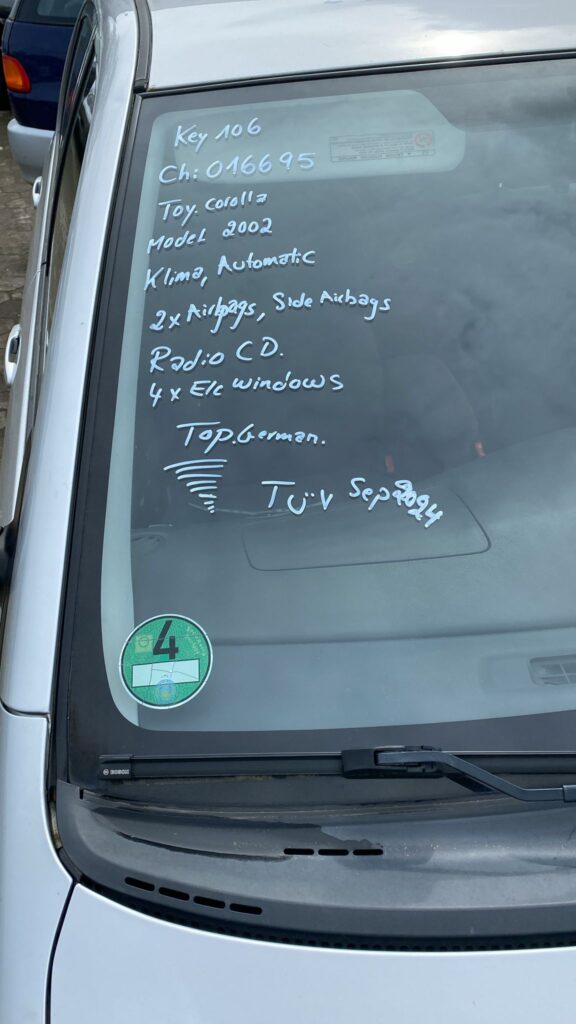 Key 106
Ch: 016695
Toy. corolla
Model 2002
Klima, Automatic
2x Airbags, Side Airbags
Radio CD.
4 x Elc windows
Top.German.
TüV Sep 2024
4
BOSCH